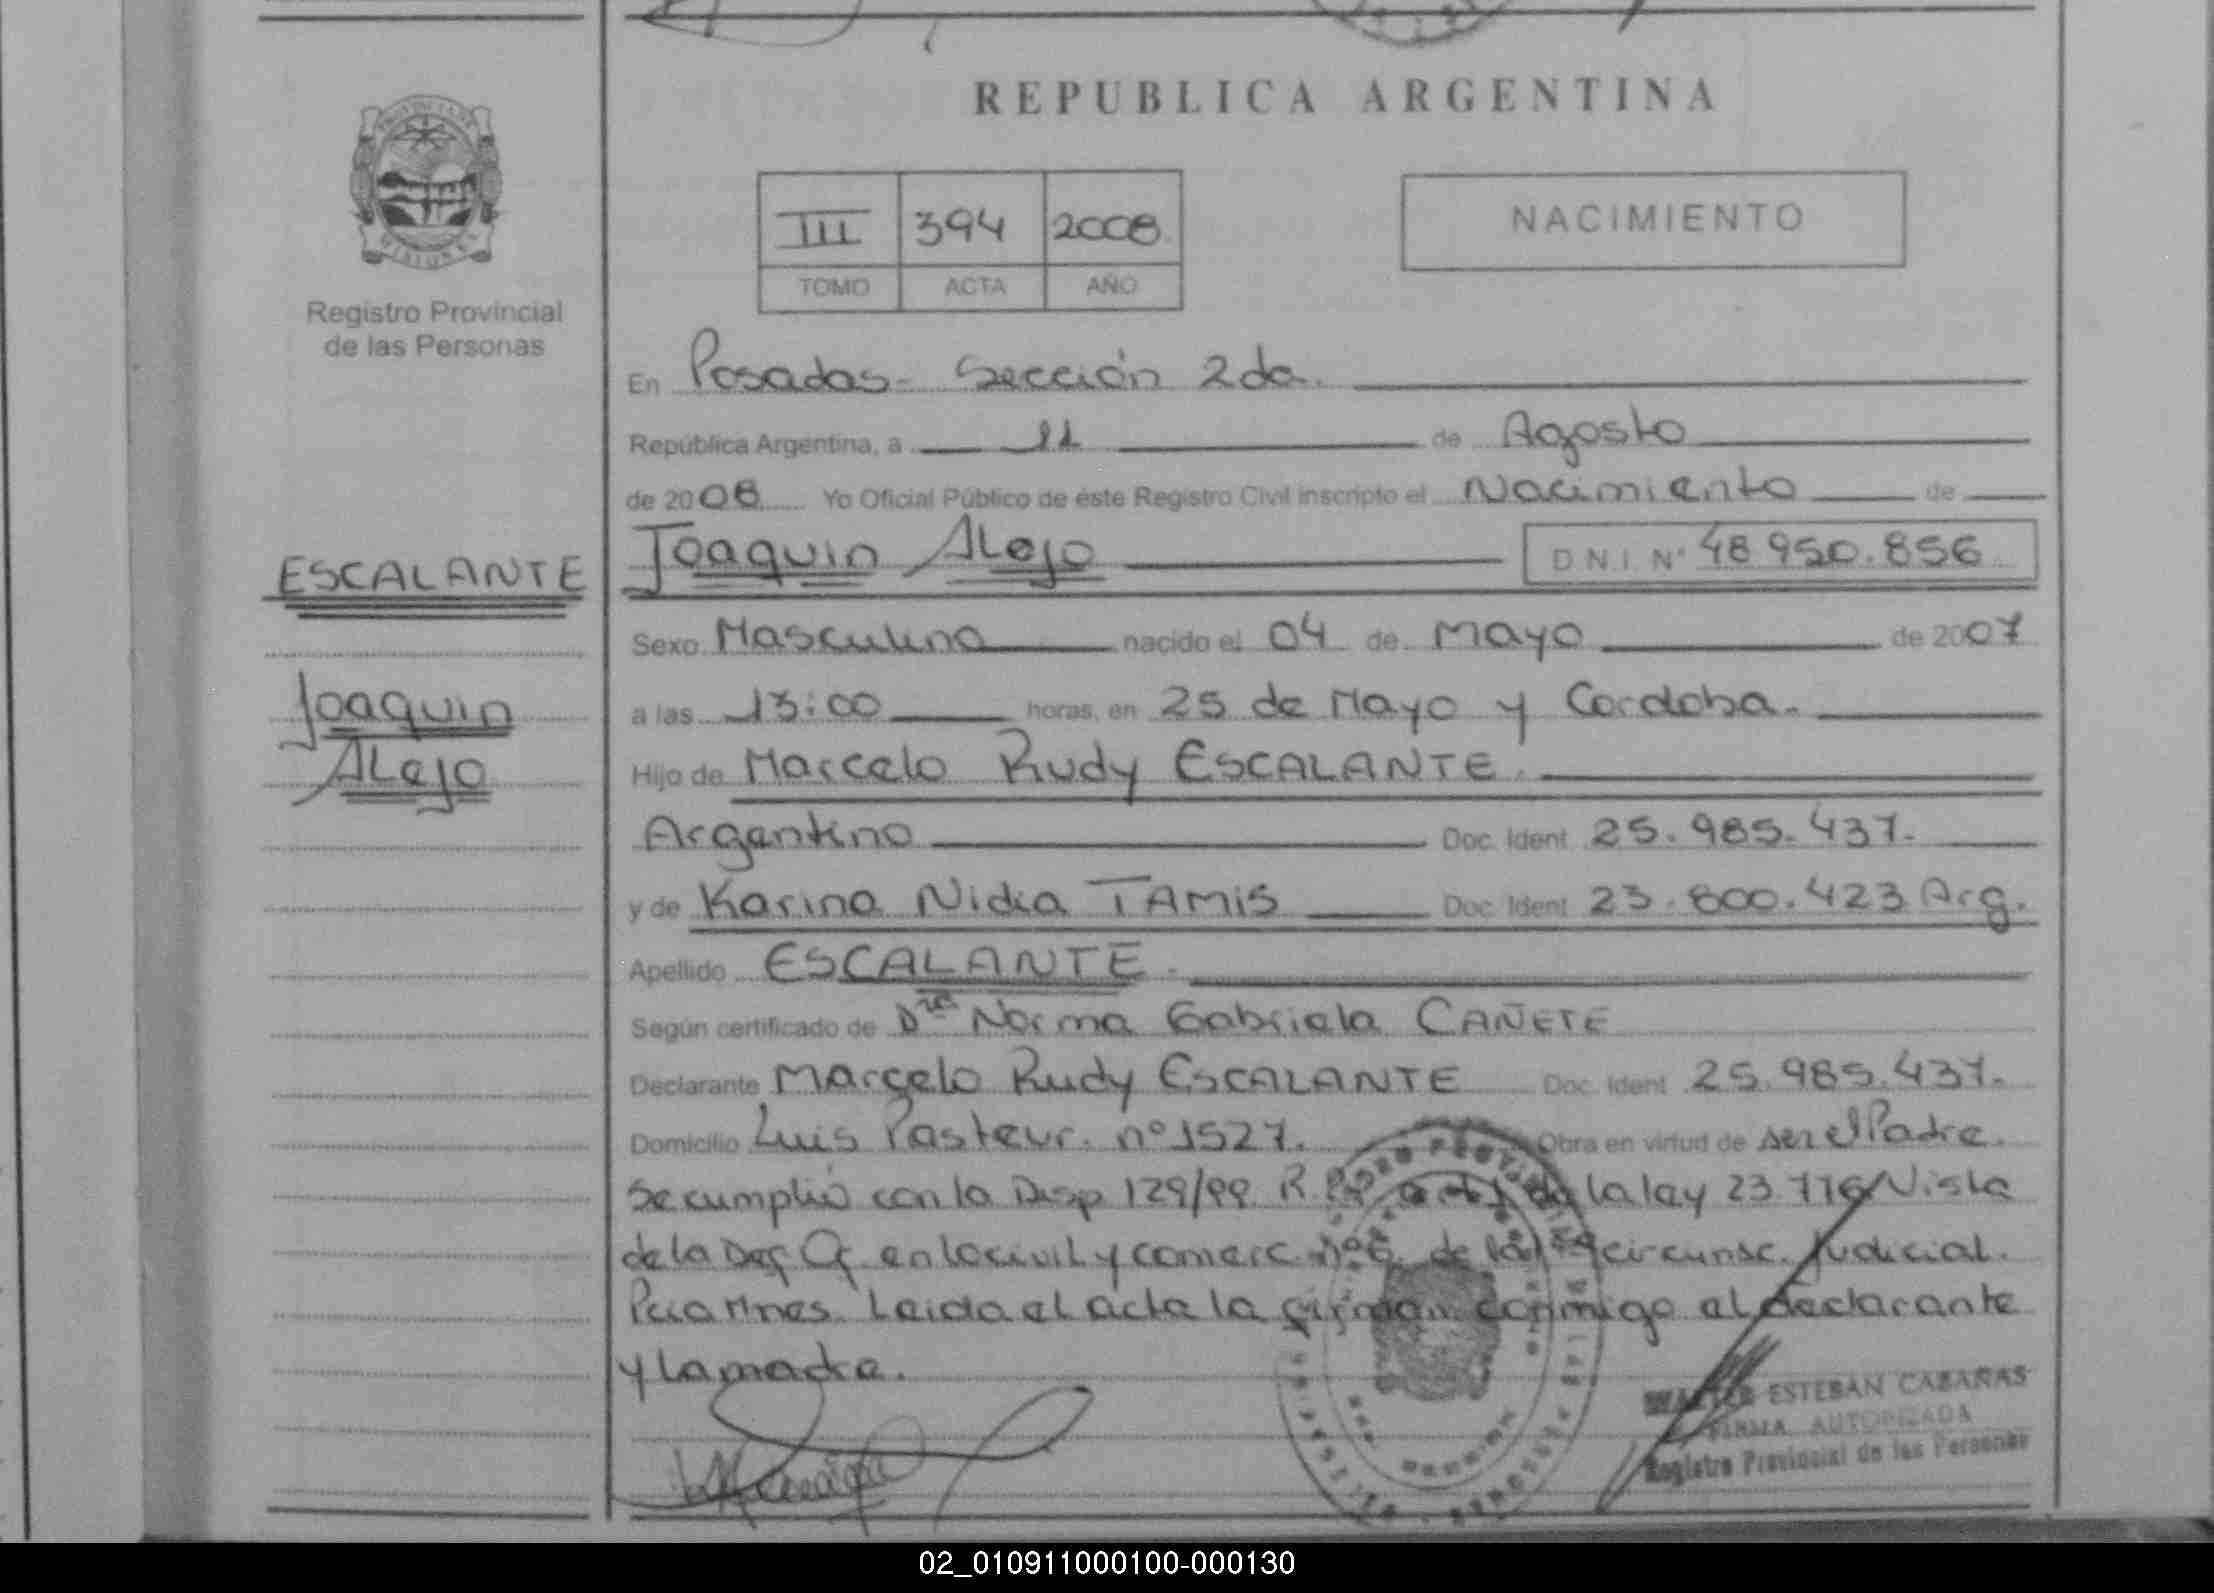 REPUBLICA ARGENTINA
III 394 2008
TOMO ACTA AÑO
NACIMIENTO
Registro Provincial
de las Personas
ESCALANTE
Joaquin
Alejo
En Posadas - Sección 2da.
República Argentina, a 11 de Agosto
de 2008 Yo Oficial Público de éste Registro Civil inscripto el Nacimiento de
Joaquin Alejo D.N.I. N° 48 950.856
Sexo Masculino nacido el 04 de Mayo de 2007
a las 13:00 horas, en 25 de Mayo y Cordoba.
Hijo de Marcelo Rudy ESCALANTE.
Argentino Doc. Ident 25.985.437.
y de Karina Nidia TAMIS Doc. Ident 23.800.423 Arg.
Apellido ESCALANTE.
Según certificado de Dra Norma Gabriela CAÑETE
Declarante Marcelo Rudy ESCALANTE Doc. Ident 25.985.437.
Domicilio Luis Pasteur. n° 1527. Obra en virtud de ser el Padre.
Se cumplió con la Disp 129/99 R. la ley 23.776 Vista
de la Def Of en lo civil y comerc. n°6. de la circunsc. Judicial.
Leida el acta la firman conmigo el declarante
y la madre.
ESTEBAN CABAÑAS
FIRMA AUTORIZADA
Registro Provincial de las Personas
02_010911000100-000130